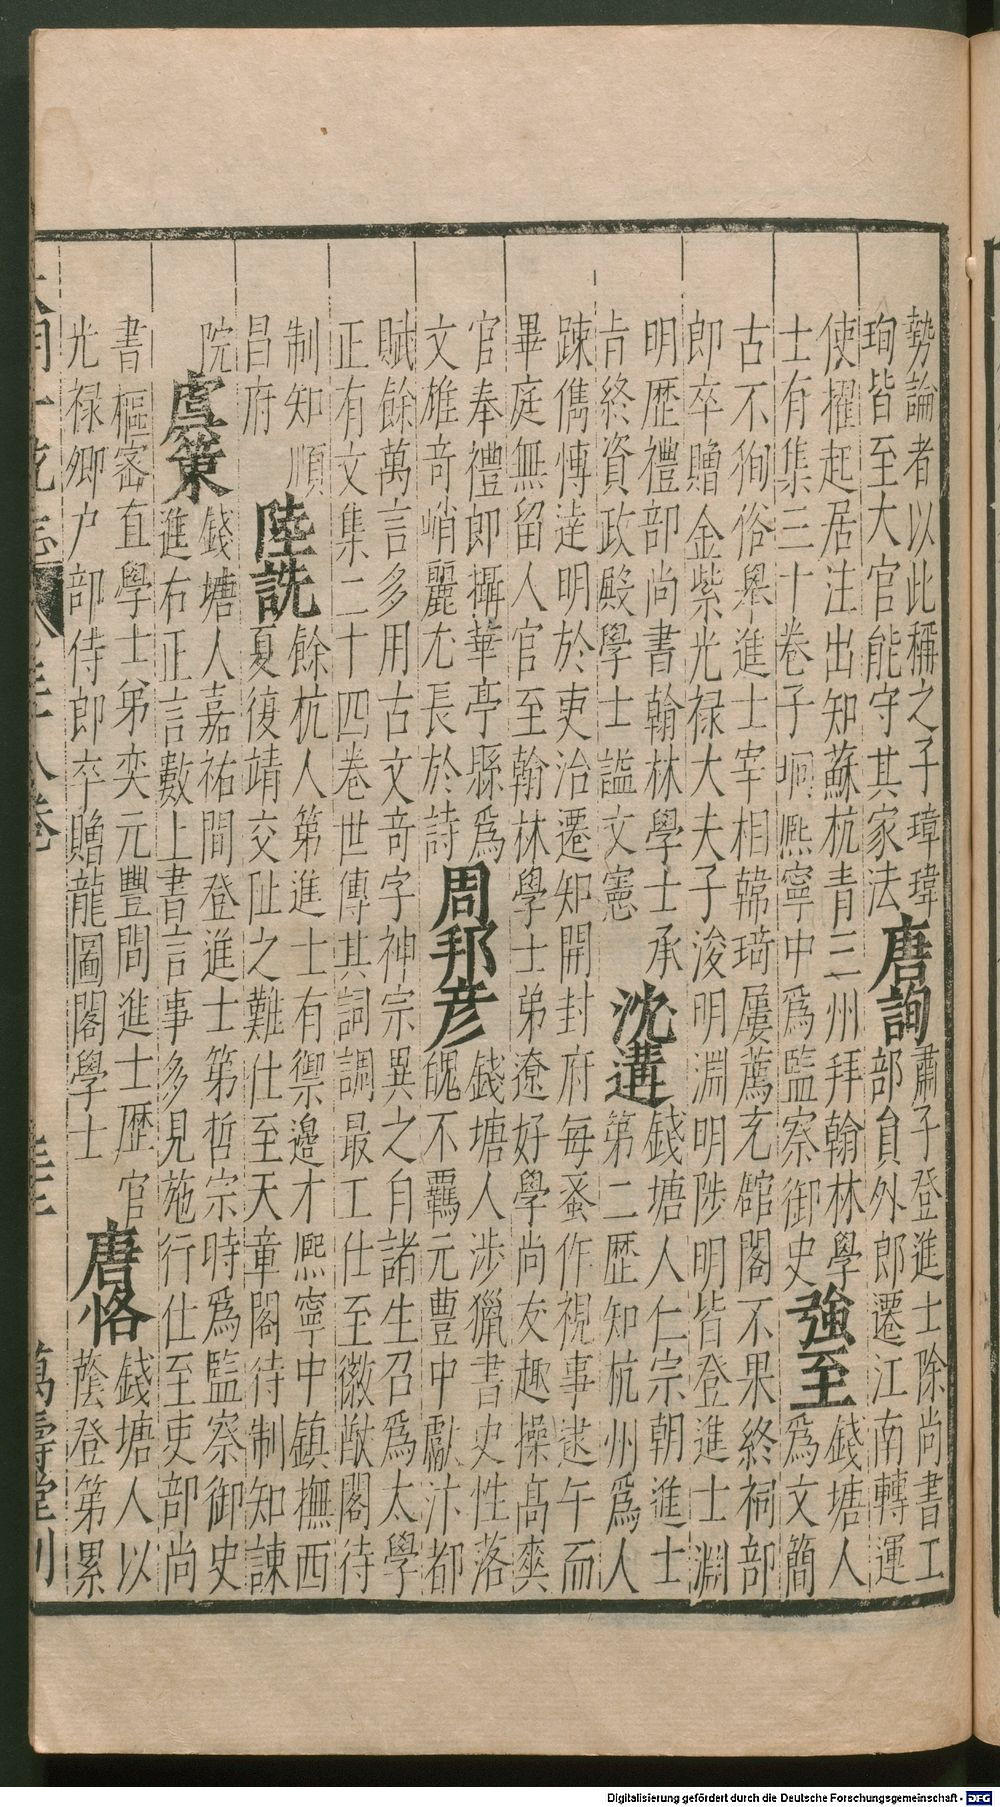 勢論者以此稱之子璋瑋
珣皆至大官能守其家法
唐詢
肅子登進士除尚書工
部員外郎遷江南轉運
使擢起居注出知蘇杭青三州拜翰林學
士有集三十卷子坰熙寧中爲監察御史
強至
錢塘人
爲文簡
古不狥俗舉進士宰相韓琦屢薦充館閣不果終祠部
郎卒贈金紫光禄大夫子浚明淵明陟明皆登進士淵
明歷禮部尚書翰林學士承
旨終資政殿學士謚文憲
沈遘
錢塘人仁宗朝進士
第二歷知杭州爲人
踈儁愽達明於吏治遷知開封府每蚤作視事逮午而
畢庭無留人官至翰林學士弟遼好學尚友趣操高爽
官奉禮郎攝華亭縣爲
文雄奇峭麗尤長於詩
周邦彥
錢塘人涉獵書史性落
魄不羈元豐中獻汴都
賦餘萬言多用古文奇字神宗異之自諸生召爲太學
正有文集二十四卷世傳其詞調最工仕至徽猷閣待
制知順
昌府
陸詵
餘杭人第進士有禦邊才熙寧中鎮撫西
夏復靖交阯之難仕至天章閣待制知諫
院
虞策
錢塘人嘉祐間登進士第哲宗時爲監察御史
進右正言數上書言事多見施行仕至吏部尚
書樞密直學士弟奕元豐間進士歷官
光禄卿户部侍郎卒贈龍圖閣學士
唐恪
錢塘人以
蔭登第累
萬壽堂刊
Digitalisierung gefördert durch die Deutsche Forschungsgemeinschaft - DFG